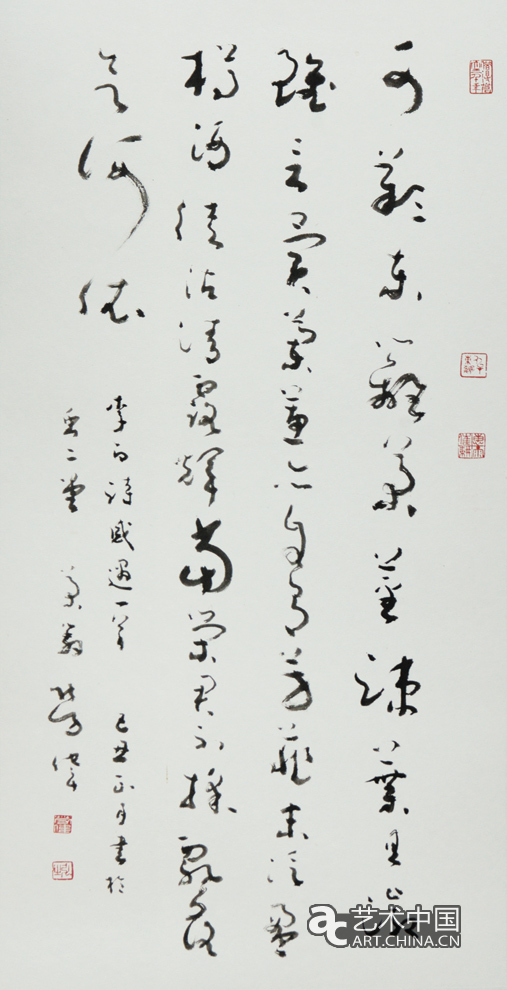 可歎東籬菊莖疎葉且微
雖言異蘭蕙亦自有芳菲未泛盈
樽酒徒沾清露輝當榮君不採飄落
欲何依
李白詩感遇一首 己丑正月書於
艺术中国
ART.CHINA.CN